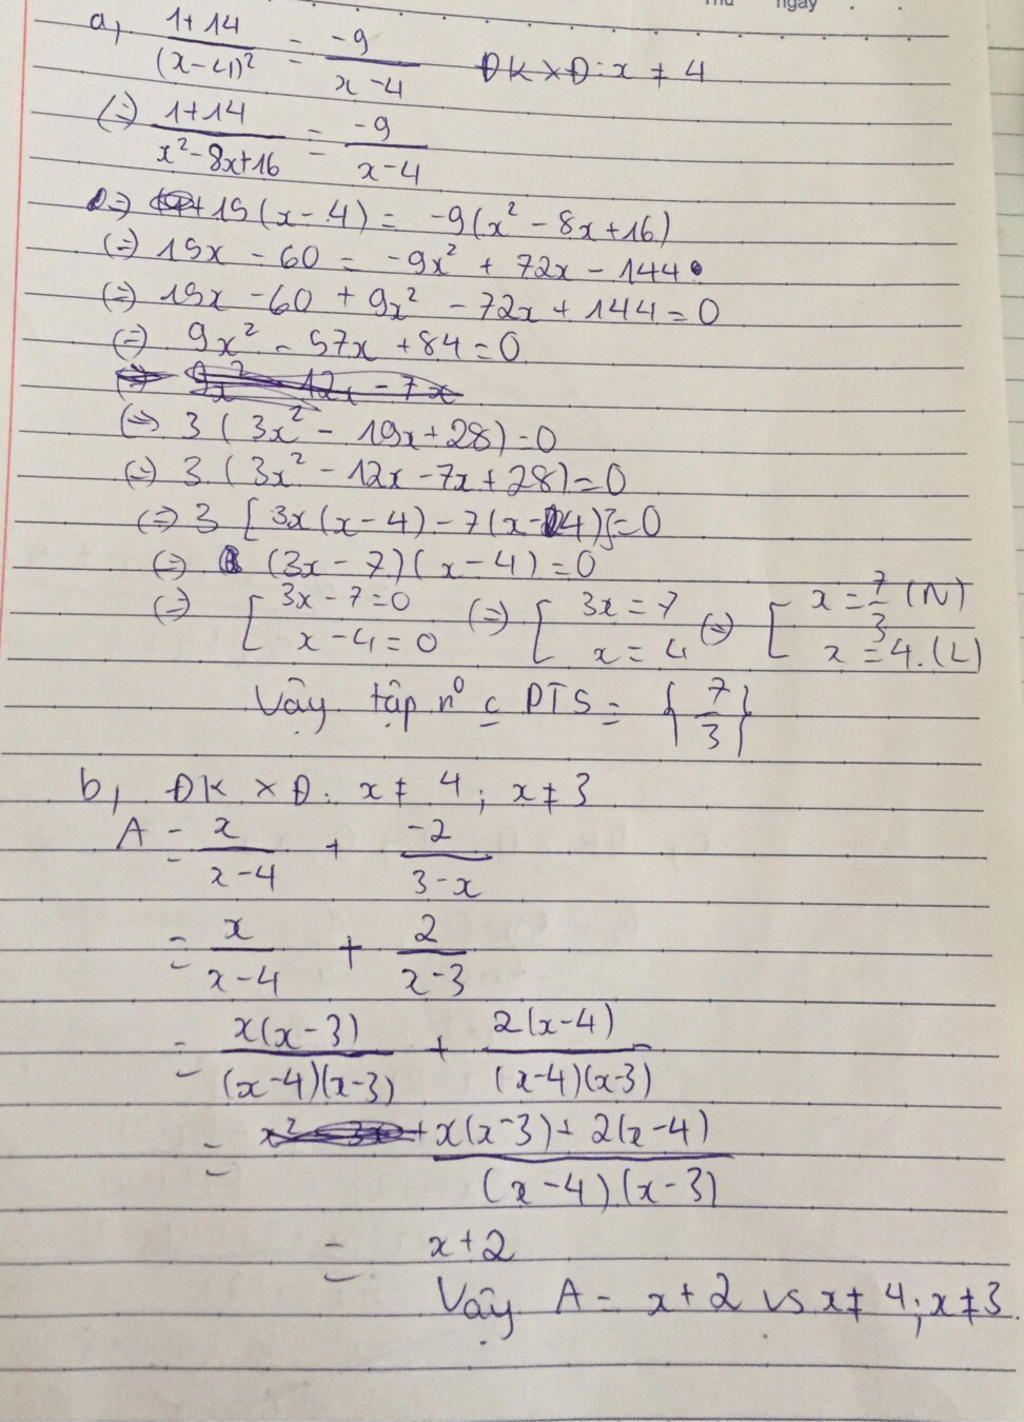 Thứ ngày
a, (1+14)/(x-4)² = -9/(x-4) ĐKXĐ: x ≠ 4
(=) (1+14)/(x²-8x+16) = -9/(x-4)
(=) 15(x-4) = -9(x²-8x+16)
(=) 15x - 60 = -9x² + 72x - 144
(=) 15x - 60 + 9x² - 72x + 144 = 0
(=) 9x² - 57x + 84 = 0
(=) 9x² - 12x - 7x
(=) 3(3x² - 19x + 28) = 0
(=) 3(3x² - 12x - 7x + 28) = 0
(=) 3[3x(x-4) - 7(x-4)] = 0
(=) (3x-7)(x-4) = 0
(=) [3x-7=0 x-4=0 (=) [3x=7 x=4 (=) [x=7/3 (N) x=4. (L)
Vậy tập n⁰ c̲ PTS = {7/3}
b, ĐKXĐ: x ≠ 4; x ≠ 3
A = x/(x-4) + -2/(3-x)
= x/(x-4) + 2/(x-3)
= x(x-3)/(x-4)(x-3) + 2(x-4)/(x-4)(x-3)
= x² - 3x + x(x-3) + 2(x-4)/(x-4)(x-3)
= x+2
Vậy A = x+2 vs x ≠ 4; x ≠ 3.